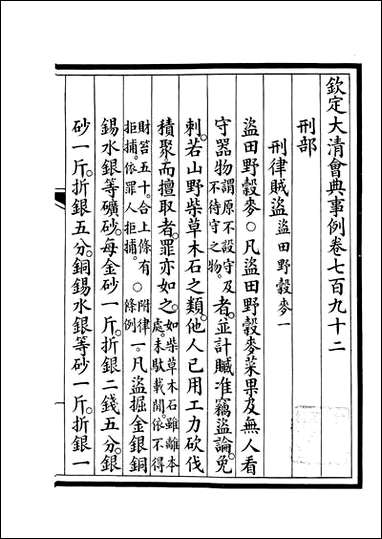 欽定大清會典事例卷七百九十二
刑部
刑律賊盜盜田野穀麥一
盜田野穀麥○凡盜田野穀麥菜果及無人看
守器物謂原不設守及不待守之物。者。並計贓准竊盜論。免
刺。若山野柴草木石之類。他人已用工力砍伐
積聚而擅取者。罪亦如之。如柴草木石雖離本處。未馱載間。依不得
財笞五十。合上條有拒捕。依罪人拒捕。○附律條例一。凡盜掘金銀銅
錫水銀等礦砂。每金砂一斤。折銀二錢五分。銀
砂一斤。折銀五分。銅錫水銀等砂一斤。折銀一